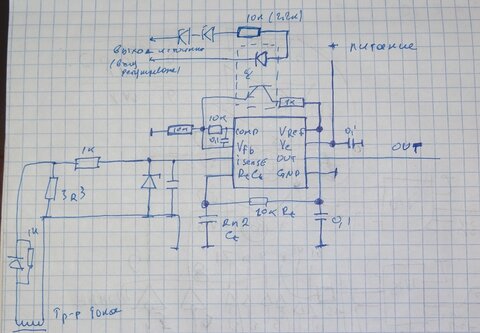 10к (2,2к)
выход источника
(вход
регулировки)
+ питание
1к
10к
10к
0,1
COMP
Vfb
iSENSE
RtCt
Vref
Vc
OUT
GND
0,1
OUT
1к
3R3
1к
8n2
Ct
20к Rt
0,1
Тр-р тока